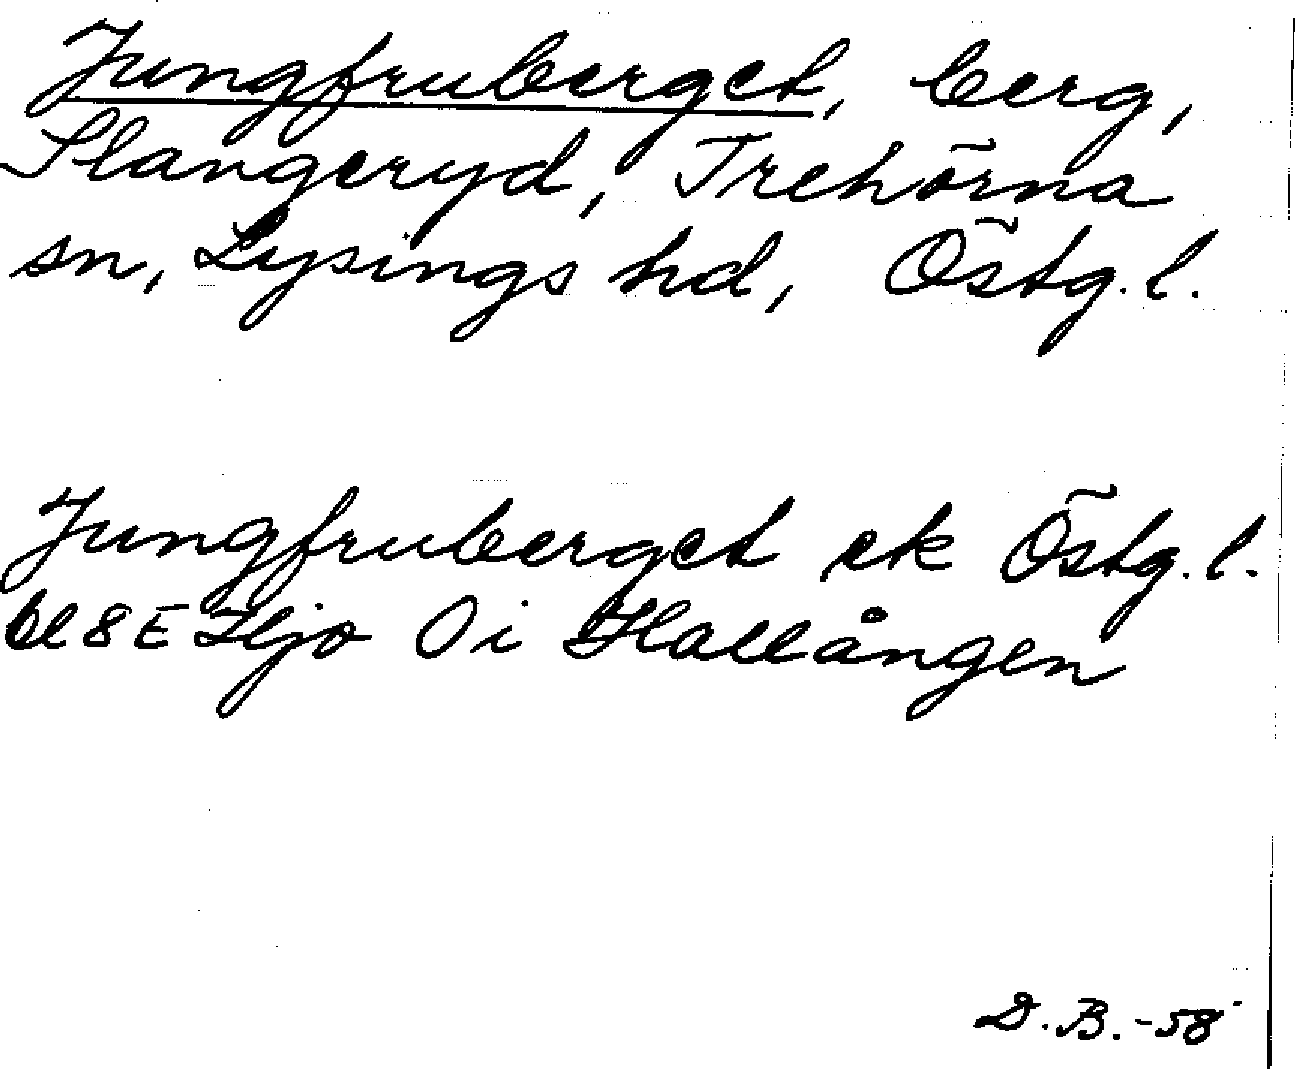 Jungfruberget, berg,
Slangeryd, Trehörna
sn, Lysings hd, Östg. l.
Jungfruberget ek Östg. l.
bl 8 E Hjo O i Hallången
D. B. -58